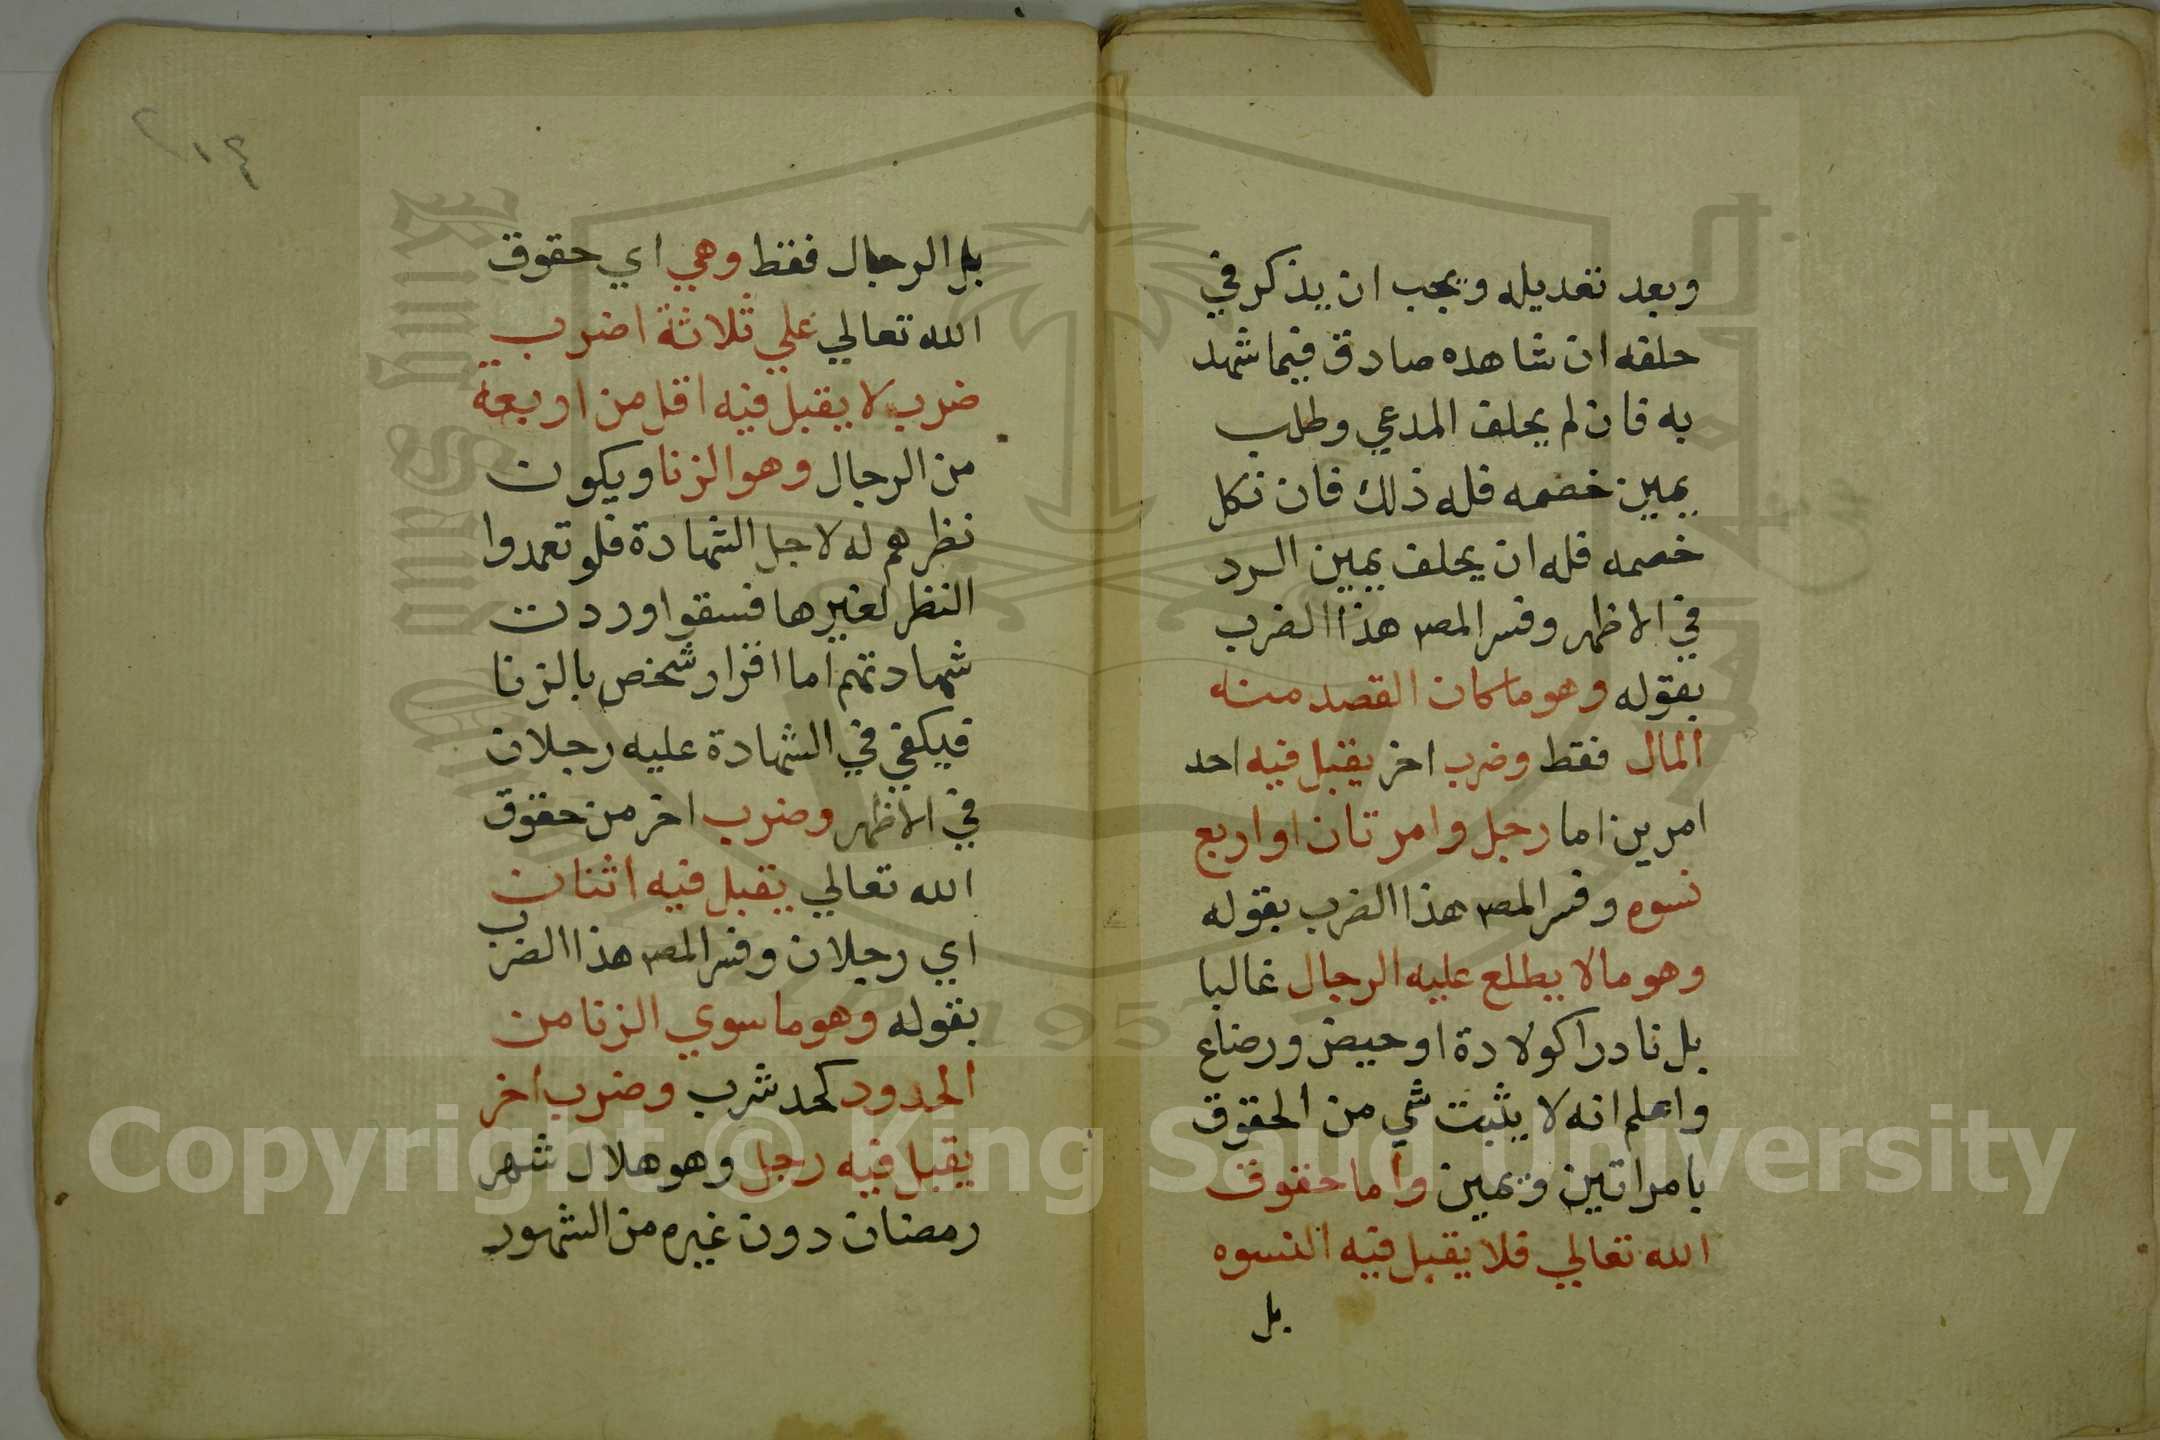 وبعد تعديله ويجب ان يذكر في
حلفه ان شاهده صادق فيما شهد
به فان لم يحلف المدعي وطلب
يمين خصمه فله ذلك فان نكل
خصمه فله ان يحلف يمين الرد
في الاظهر وفسر المصـ هذا الضرب
بقوله وهو ما كان القصد منه
المال فقط وضرب اخر يقبل فيه احد
امرين اما رجل وامرتان او اربع
نسوه وفسر المصـ هذا الضرب بقوله
وهو ما لا يطلع عليه الرجال غالبا
بل نادرا كولادة او حيض ورضاع
واعلم انه لا يثبت شي من الحقوق
بامراتين ويمين واما حقوق
الله تعالي فلا يقبل فيه النسوه
بل
بل الرجال فقط وهي اي حقوق
الله تعالي علي ثلاثة اضرب
ضرب لا يقبل فيه اقل من اربعة
من الرجال وهو الزنا ويكون
نظرهم له لاجل الشهادة فلو تعمدوا
النظر لغيرها فسقوا وردت
شهادتهم اما اقرار شخص بالزنا
فيكفي في الشهادة عليه رجلان
في الاظهر وضرب اخر من حقوق
الله تعالي يقبل فيه اثنان
اي رجلان وفسر المصـ هذا الضرب
بقوله وهو ما سوي الزنا من
الحدود كحد شرب وضرب اخر
يقبل فيه رجل وهو هلال شهر
رمضان دون غيره من الشهور
Copyright © King Saud University
1957